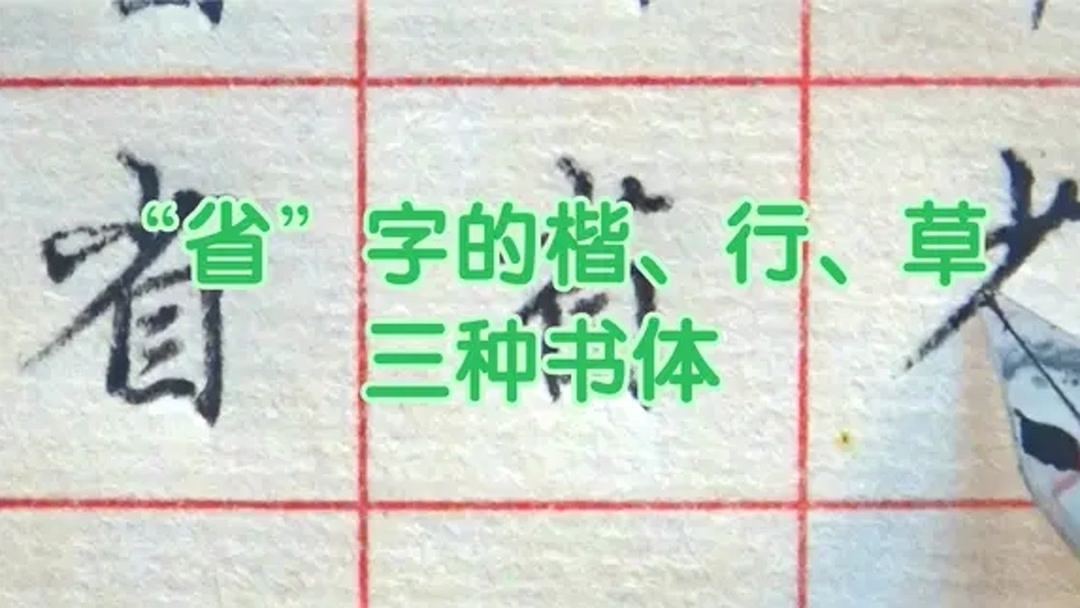 “省”字的楷、行、草
三种书体
省